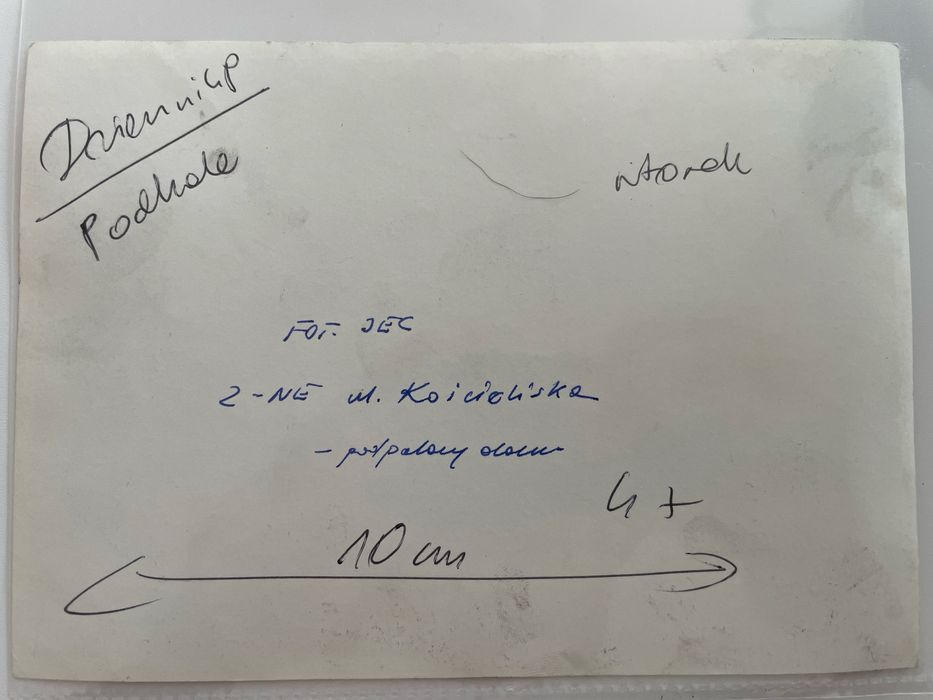 Dziennik P
Podhale
wtorek
FOT. JEC
Z-NE ul. Kościeliska
- podpalony dom
4 +
10 cm